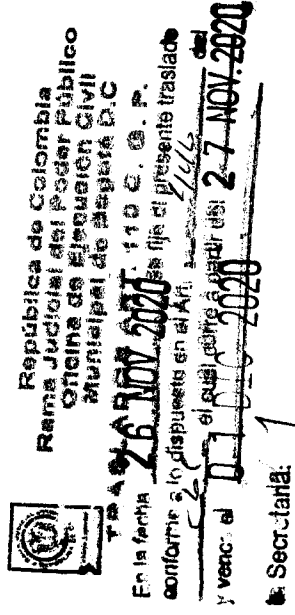 República de Colombia
Rama Judicial del Poder Público
Oficina de Ejecución Civil
Municipal de Bogotá D.C
TRASLADOS ART. 110 C. G. P.
En la fecha 26 NOV 2020 se fija el presente traslado
conforme a lo dispuesto en el Art. 446 del
el cual corre a partir del 27 NOV. 2020
y vence el 01 DIC 2020
Secretaria: